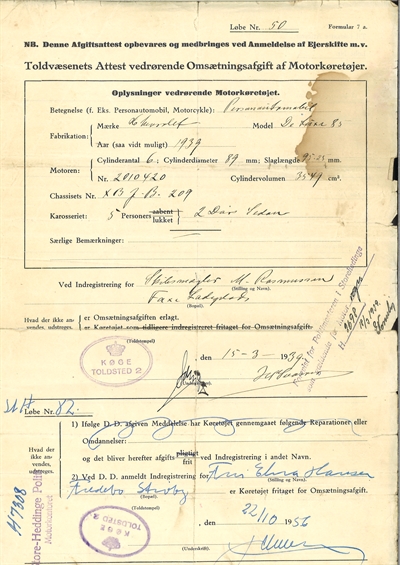 Løbe Nr. 50 Formular 7 a.
NB. Denne Afgiftsattest opbevares og medbringes ved Anmeldelse af Ejerskifte m.v.
Toldvæsenets Attest vedrørende Omsætningsafgift af Motorkøretøjer.
Oplysninger vedrørende Motorkøretøjet.
Betegnelse (f. Eks. Personautomobil, Motorcykle): Personautomobil
Fabrikation: Mærke Chevrolet Model De Luxe 85
Aar (saa vidt muligt) 1939
Motoren: Cylinderantal 6; Cylinderdiameter 89 mm; Slaglængde 95.25 mm.
Nr. 2010420 Cylindervolumen 3549 cm³.
Chassisets Nr. XB J-B. 209
Karosseriet: 5 Personers aabent lukket 2 Dörs Sedan
Særlige Bemærkninger:
Ved Indregistrering for M. Rasmussen
(Stilling og Navn).
Faxe Ladeplads
(Bopæl).
Hvad der ikke anvendes, udstreges.
er Omsætningsafgiften erlagt.
er Køretøjet som tidligere indregistreret fritaget for Omsætningsafgift.
(Toldstempel)
KØGE
TOLDSTED 2
, den 15-3-1939
Løbe Nr. 82.
1) Ifølge D. D. afgiven Meddelelse har Køretøjet gennemgaaet følgende Reparationer eller
Omdannelser:
og det bliver herefter afgifts pligtigt frit ved Indregistrering i andet Navn.
Hvad der ikke anvendes, udstreges.
2) Ved D. D. anmeldt Indregistrering for Fru Elna Hansen
(Stilling og Navn).
Fredebo Strøby er Køretøjet fritaget for Omsætningsafgift.
(Bopæl).
(Toldstempel)
22/10 1956
KØGE
TOLDSTED 2
, den
(Underskrift).
Store-Heddinge Poli
Motorkontoret
H7308